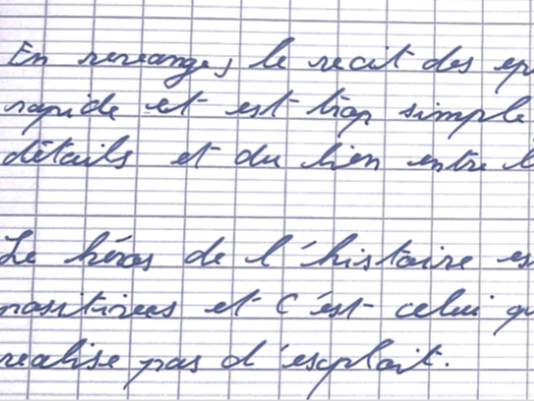 En revange, le recit des ep
rapide et est trop simple
détails et du lien entre l
Le héros de l'histoire es
positives et C'est celui qu
realise pas d'exploit.